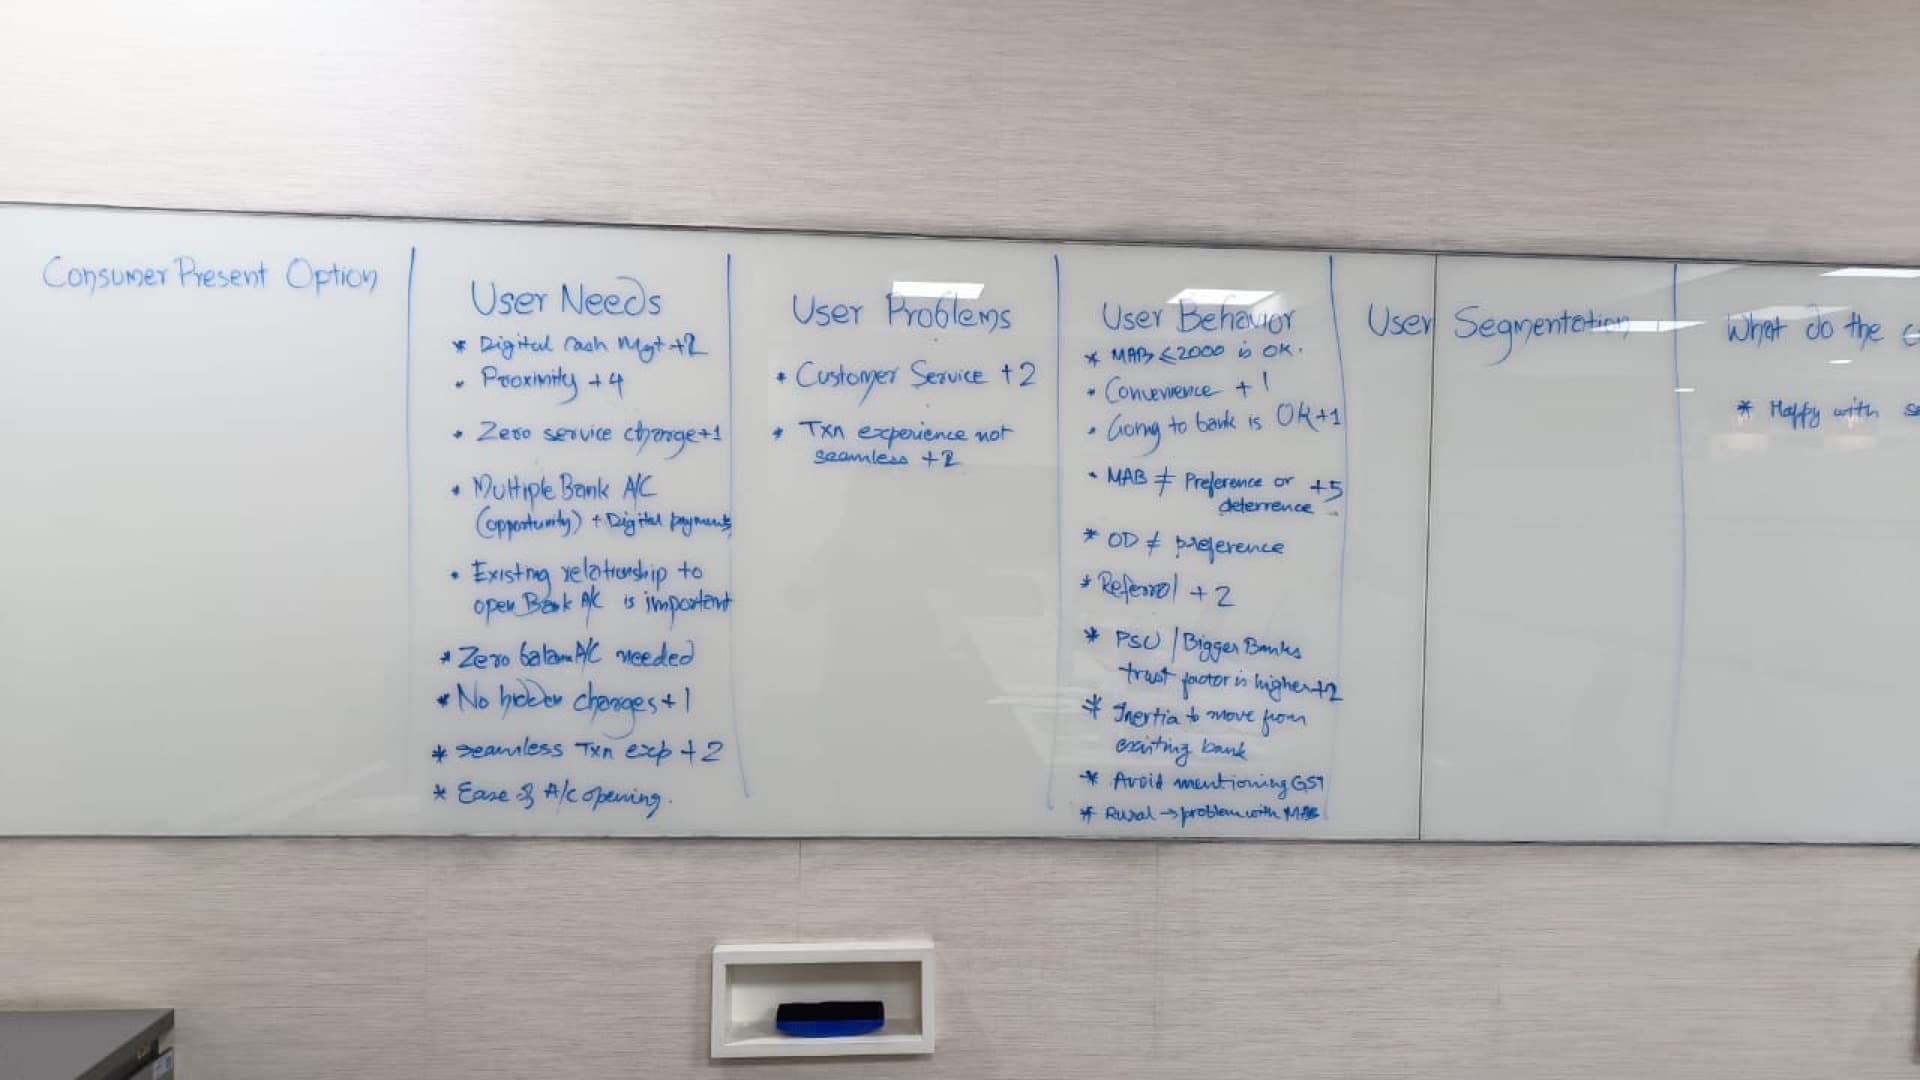 Consumer Present Option
User Needs
* Digital Cash Mgt +2
• Proximity +4
• Zero service charge +1
• Multiple Bank A/C
(opportunity) + Digital payments
• Existing relationship to
open Bank A/C is important
* Zero balance A/C needed
* No hidden charges +1
* seamless Txn exp +2
* Ease of A/c opening.
User Problems
• Customer Service +2
• Txn experience not
seamless +2
User Behavior
* MAB ≤ 2000 is OK.
• Convenience +1
• Going to bank is Ok +1
• MAB ≠ Preference or +5
deterrence
* OD ≠ preference
* Referral +2
* PSU / Bigger Banks
trust factor is higher +2
* Inertia to move from
existing bank
* Avoid mentioning GST
* Rural → problem with MAB
User Segmentation
What do the
* Happy with